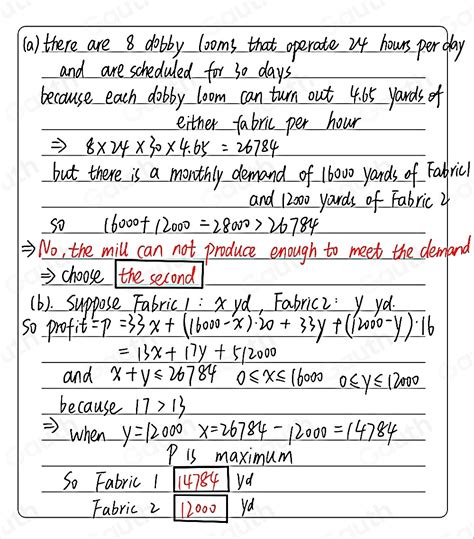 (a) there are 8 dobby looms that operate 24 hours per day
and are scheduled for 30 days
because each dobby loom can turn out 4.65 yards of
either fabric per hour
⇒ 8×24×30×4.65 = 26784
but there is a monthly demand of 16000 yards of Fabric 1
and 12000 yards of Fabric 2
so 16000+12000 = 28000 > 26784
⇒ No, the mill can not produce enough to meet the demand
⇒ choose the second
(b). suppose Fabric 1 : x yd, Fabric 2 : y yd.
So profit = p = 33x + (16000-x)·20 + 33y + (12000-y)·16
= 13x + 17y + 512000
and x+y ≤ 26784 0≤x≤16000 0≤y≤12000
because 17 > 13
⇒ when y=12000 x=26784-12000=14784
P is maximum
So Fabric 1 14784 yd
Fabric 2 12000 yd